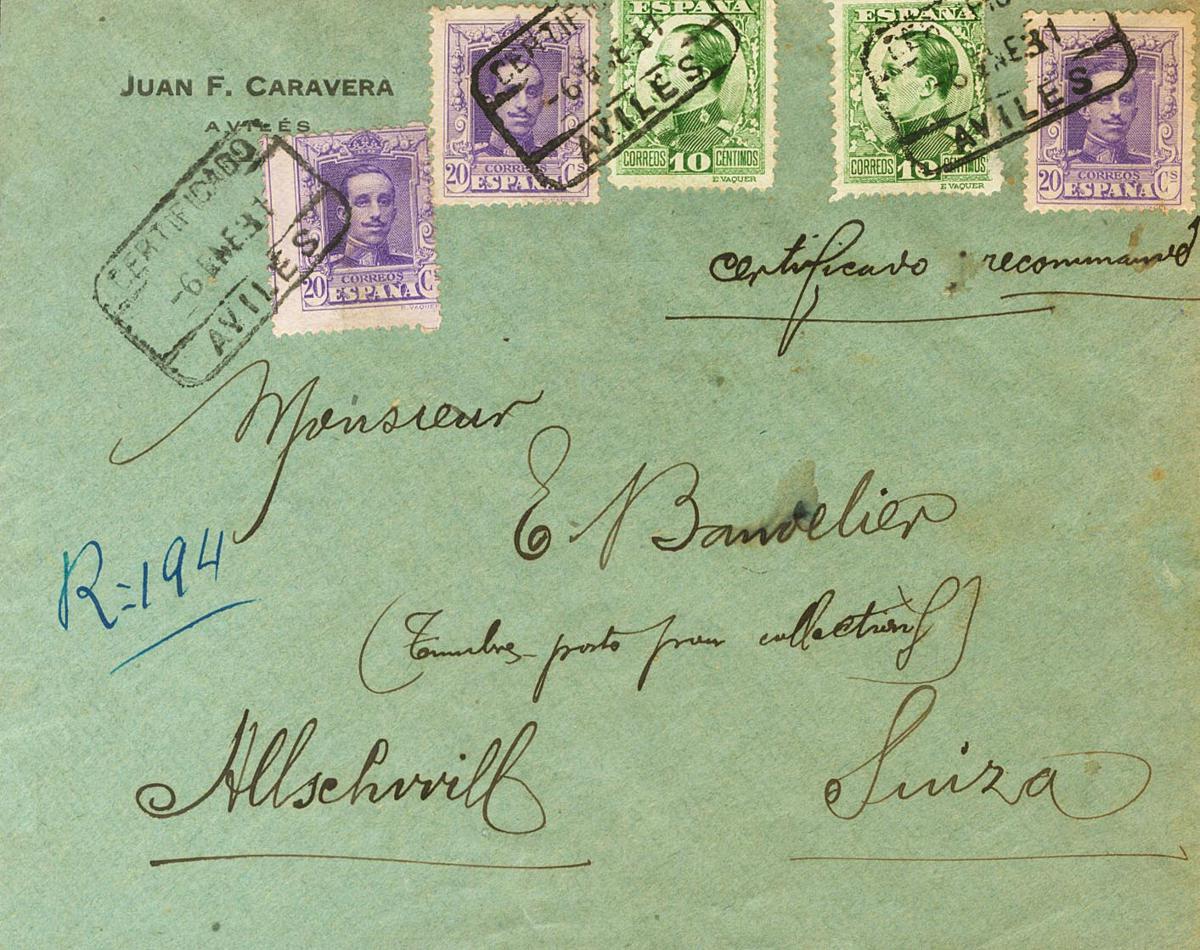 JUAN F. CARAVERA
AVILÉS
CERTIFICADO
-6 ENE 31
AVILES
20 CORREOS Cs
ESPAÑA
E. VAQUER
CERTIFI
-6 ENE 31
AVILES
20 CORREOS Cs
ESPAÑA
ESPAÑA
CORREOS 10 CENTIMOS
E. VAQUER
ESPAÑA
CORREOS 10 CENTIMOS
E. VAQUER
6 ENE 31
AVILES
20 CORREOS Cs
ESPAÑA
certificado recommandé
Monsieur
E Bandelier
R=194
(Timbres poste pour collections)
Allschwill Suiza